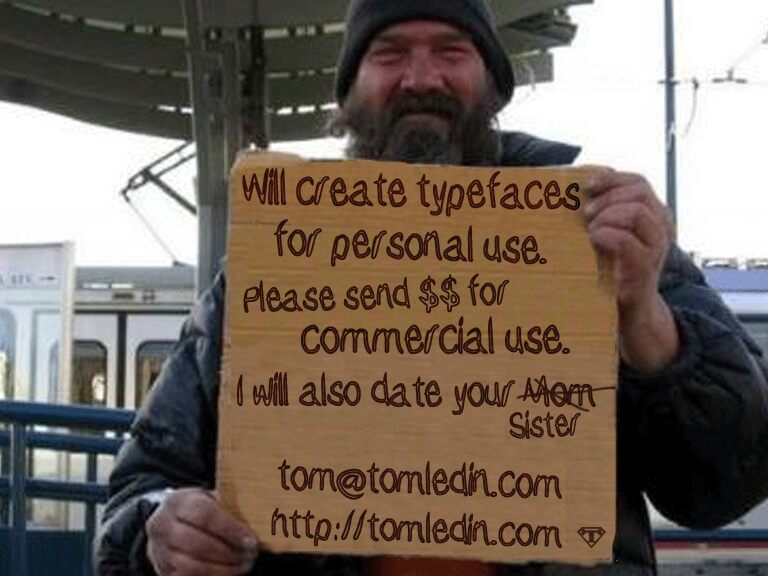 Will create typefaces
for personal use.
Please send $$ for
commercial use.
I will also date your Mom
Sister
tom@tomledin.com
http://tomledin.com T